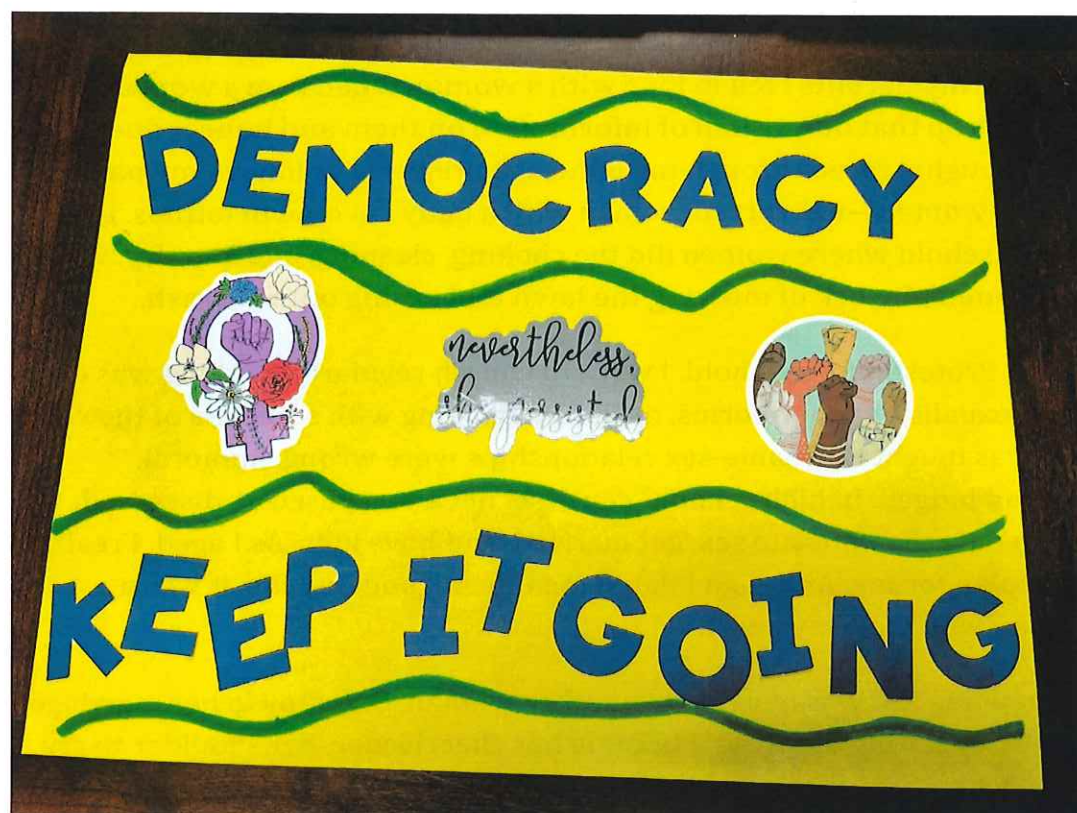 DEMOCRACY
nevertheless,
she persisted
KEEP IT GOING